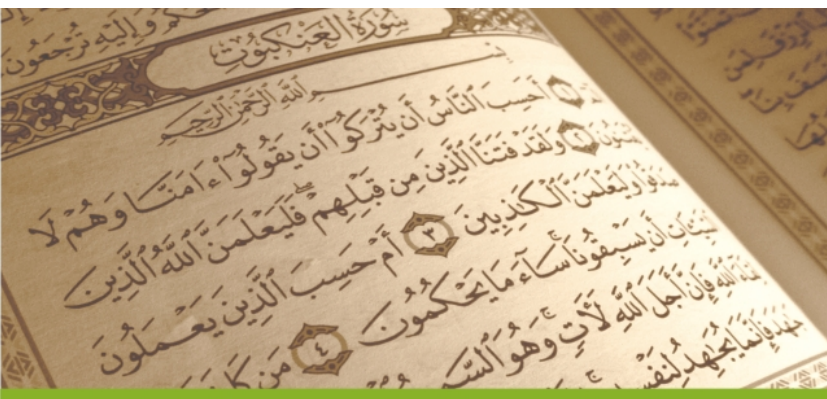 حُكْمُ وَإِلَيْهِ تُرْجَعُونَ
سُورَةُ الْعَنكَبُوتِ
بِسْمِ ٱللَّهِ ٱلرَّحْمَٰنِ ٱلرَّحِيمِ
١ أَحَسِبَ ٱلنَّاسُ أَن يُتْرَكُوٓا۟ أَن يَقُولُوٓا۟ ءَامَنَّا وَهُمْ لَا
٢ وَلَقَدْ فَتَنَّا ٱلَّذِينَ مِن قَبْلِهِمْ ۖ فَلَيَعْلَمَنَّ ٱللَّهُ ٱلَّذِينَ
صَدَقُوا۟ وَلَيَعْلَمَنَّ ٱلْكَٰذِبِينَ ٣ أَمْ حَسِبَ ٱلَّذِينَ يَعْمَلُونَ
أَن يَسْبِقُونَا ۚ سَآءَ مَا يَحْكُمُونَ ٤ مَن كَانَ
ٱللَّهِ فَإِنَّ أَجَلَ ٱللَّهِ لَءَاتٍ ۚ وَهُوَ ٱلسَّ
فَإِنَّمَا يُجَٰهِدُ لِنَفْسِ